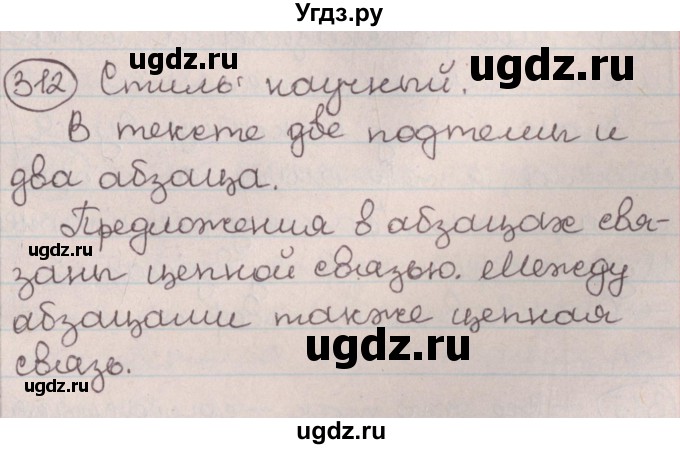 Угдз.ру
ugdz.ru ugdz.ru
312 Стиль: научный.
В тексте две подтемы и
ugdz.ru
два абзаца.
Предложения в абзацах свя-
ugdz.ru
заны цепной связью. Между
абзацами также цепная
ugdz.ru
связь.
ugdz.ru
ugdz.ru